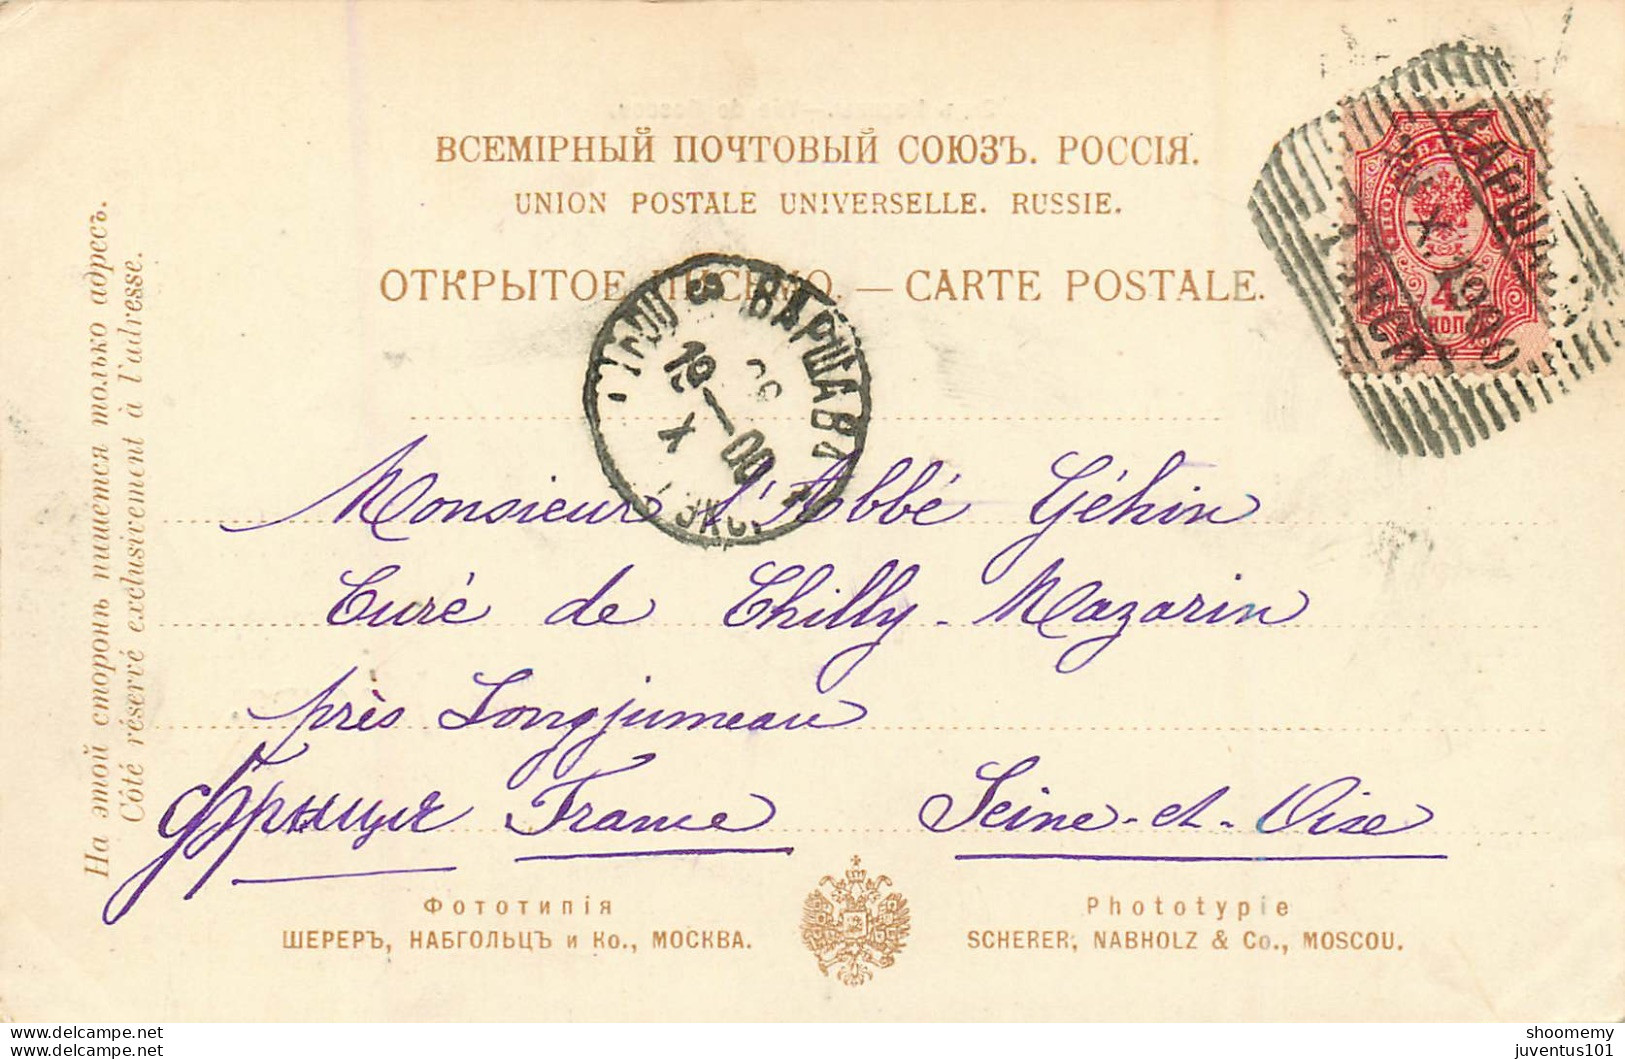 ВСЕМІРНЫЙ ПОЧТОВЫЙ СОЮЗЪ. РОССІЯ.
UNION POSTALE UNIVERSELLE. RUSSIE.
ОТКРЫТОЕ ПИСЬМО. — CARTE POSTALE.
На этой сторонѣ пишется только адресъ.
Côté réservé exclusivement à l'adresse.
ВАРШАВА
19 — 00
X
ВАРШАВА
X. 1900
4
КОП
Monsieur l'Abbé Géhin
Curé de Chilly-Mazarin
près Longjumeau
Франція France Seine-et-Oise
Фототипія
ШЕРЕРЪ, НАБГОЛЬЦЪ и Ко., МОСКВА.
Phototypie
SCHERER, NABHOLZ & Co., MOSCOU.
shoomemy
juventus101